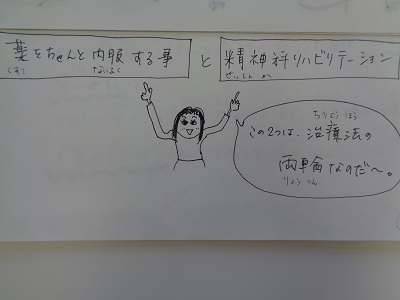 薬をちゃんと内服する事 と 精神科リハビリテーション
くすり ないふく せいしん か
ちりょうほう
この2つは、治療法の
両車輪なのだ〜。
りょう りん